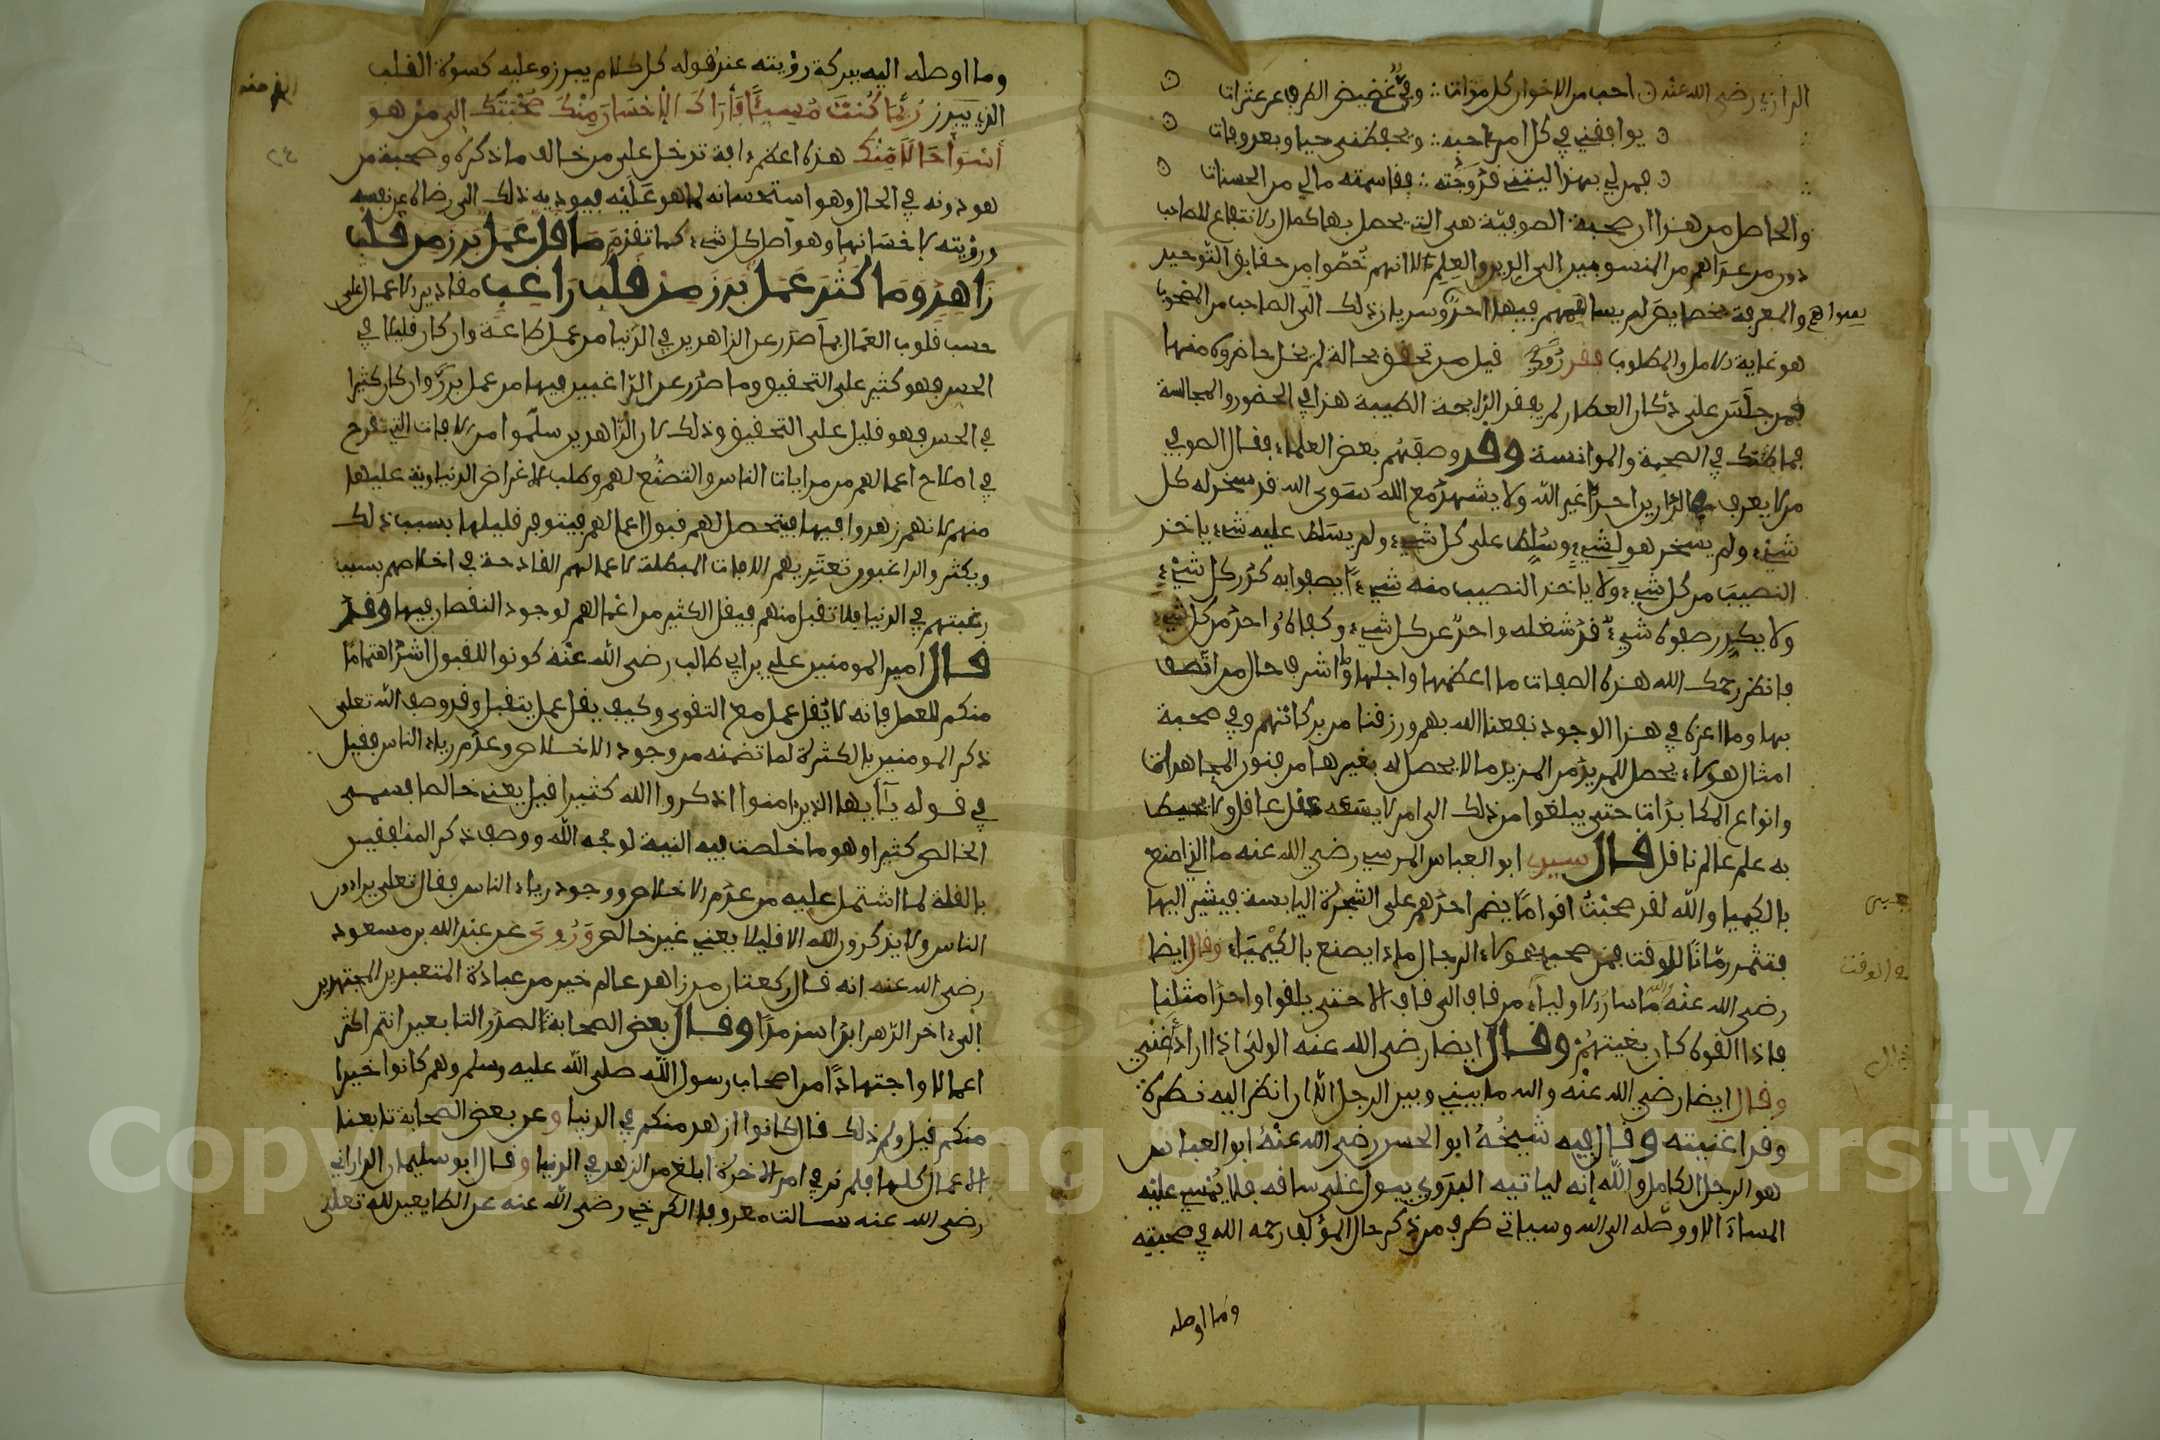 الرازي رضي الله عنه احب من الاخوان كل مواتي ∴ وفي غضيض الطرف عن عثراتي
يوافقني في كل امر احبه ∴ ويحفظني حيا وبعد وفاتي
فمن لي بهذا ليتني قد وجدته ∴ فقاسمته مالي من الحسنات
والحاصل من هذا ان صحبة الصوفية هي التي يحصل بها كمال الانتفاع للصاحب
دون من عداهم من المنسوبين الى الدين والعلم لانهم خصوا من حقائق التوحيد
والمعرفة بخصايص لم يساهمهم فيها احد وسريان ذلك الى الصاحب من المصحوب
هو غاية الامل والمطلوب فقد روي قيل من تحقق بحالة لم يخل حاضروه منها
فمن جلس على دكان العطار لم يفقد الرايحة الطيبة هذا في الحضور والمجالسة
فما ظنك في الصحبة والموانسة وقد وصفهم بعض العلماء فقال الصوفي
من لا يعرف في الدارين احدا غير الله ولا يشهد مع الله سوى الله قد سخر له كل
شيء ولم يسخر هو لشيء وسلط على كل شيء ولم يسلط عليه شيء ياخذ
النصيب من كل شيء ولا ياخذ النصيب منه شيء يصفوا به كدر كل شيء
ولا يكدر صفوه شيء قد شغله واحد عن كل شيء وكفاه واحد من كل شيء
فانظر رحمك الله هذه الصفات ما اعظمها واجلها واشرف حال من اتصف
بها وما اعزه في هذا الوجود نفعنا الله بهم ورزقنا من بركاتهم وفي صحبة
امثال هولاء يحصل للمريد من المزيد ما لا يحصل له بغيرها من فنون المجاهدات
وانواع المكابدات حتى يبلغوا من ذلك الى امر لا يسعه عقل عاقل ولا يحيط
به علم عالم ناقل قال سيدي ابو العباس المرسي رضي الله عنه ما الذي اصنع
بالكيميا والله لقد صحبت اقواما يضم احدهم على الشجرة اليابسة فيشير اليها
فتثمر رمانا للوقت فمن صحب هولاء الرجال ماذا يصنع بالكيمياء وقال ايضا
رضي الله عنه والله ما سار الاولياء من قاف الى قاف الا حتى يلقوا واحدا مثلنا
فاذا القوه كان بغيتهم وقال ايضا رضي الله عنه الولي اذا اراد اغنى
وقال ايضا رضي الله عنه والله ما بيني وبين الرجل الا ان انظر اليه نظرة
وقد اغنيته وقال فيه شيخه ابو الحسن رضي الله عنه ابو العباس
هو الرجل الكامل والله انه لياتيه البدوي يبول على ساقه فلا يمسي عليه
المساء الا ووصله الى الله وسياتي طرف من ذكر حال المؤلف رحمه الله في صحبته
وما اوصله
وما اوصله اليه ببركة رؤيته عند قوله كل كلام يبرز وعليه كسوة القلب
الذي يبرز ربما كنت مسيئا فاراك الاحسان منك صحبتك الى من هو
اسوا حالا منك هذه اعظم افة تدخل على من خالف ما ذكره وصحبة من
هو دونه في الحال وهو استحسانه لما هو عليه فيوديه ذلك الى رضاه عن نفسه
ورؤيته لاحسانها وهو اصل كل شيء كما تقدم ما قل عمل برز من قلب
زاهد وما كثر عمل برز من قلب راغب مقادير الاعمال على
حسب قلوب العمال فما صدر عن الزاهدين في الدنيا من عمل طاعة وان كان قليلا في
الحس فهو كثير على التحقيق وما صدر عن الراغبين فيها من عمل بر وان كان كثيرا
في الحس فهو قليل على التحقيق وذلك لان الزاهدين سلموا من الافات التي تقدح
في اصلاح اعمالهم من مرايات الناس والتصنع لهم وطلب الاغراض الدنياوية عليها
منهم لانهم زهدوا فيها فيتحصل لهم قبول اعمالهم فيتوفر قليلها بسبب ذلك
ويكثر والراغبون تعتريهم الافات المبطلة لاعمالهم القادحة في اخلاصهم بسبب
رغبتهم في الدنيا فلا تقبل منهم فيقل الكثير من اعمالهم لوجود النقصان فيها وقد
قال امير المومنين علي بن ابي طالب رضي الله عنه كونوا للقبول اشد اهتماما
منكم للعمل فانه لا يقل عمل مع التقوى وكيف يقل عمل يتقبل وقد وصف الله تعلى
ذكر المومنين بالكثرة لما تضمنه من وجود الاخلاص وعدم رياء الناس فقيل
في قوله يا ايها الذين امنوا اذكروا الله كثيرا قيل يعني خالصا فسمى
الخالص كثيرا وهو ما خلصت فيه النية لوجه الله ووصف ذكر المنافقين
بالقلة لما اشتمل عليه من عدم الاخلاص ووجود رياء الناس فقال تعلى يراءون
الناس ولا يذكرون الله الا قليلا يعني غير خالص وروي عن عبد الله بن مسعود
رضي الله عنه انه قال ركعتان من زاهد عالم خير من عبادة المتعبدين المجتهدين
الى ءاخر الدهر ابدا سرمدا وقال بعض الصحابة لصدر التابعين انتم اكثر
اعمالا واجتهادا من اصحاب رسول الله صلى الله عليه وسلم وهم كانوا خيرا
منكم قيل ولم ذلك قال كانوا ازهد منكم في الدنيا وعن بعض الصحابة تابعنا
الاعمال كلها فلم نر في امر الاخرة ابلغ من الزهد في الدنيا وقال ابو سليمان الداراني
رضي الله عنه سالت معروفا الكرخي رضي الله عنه عن الطايعين لله تعلى
Copyright © King Saud University